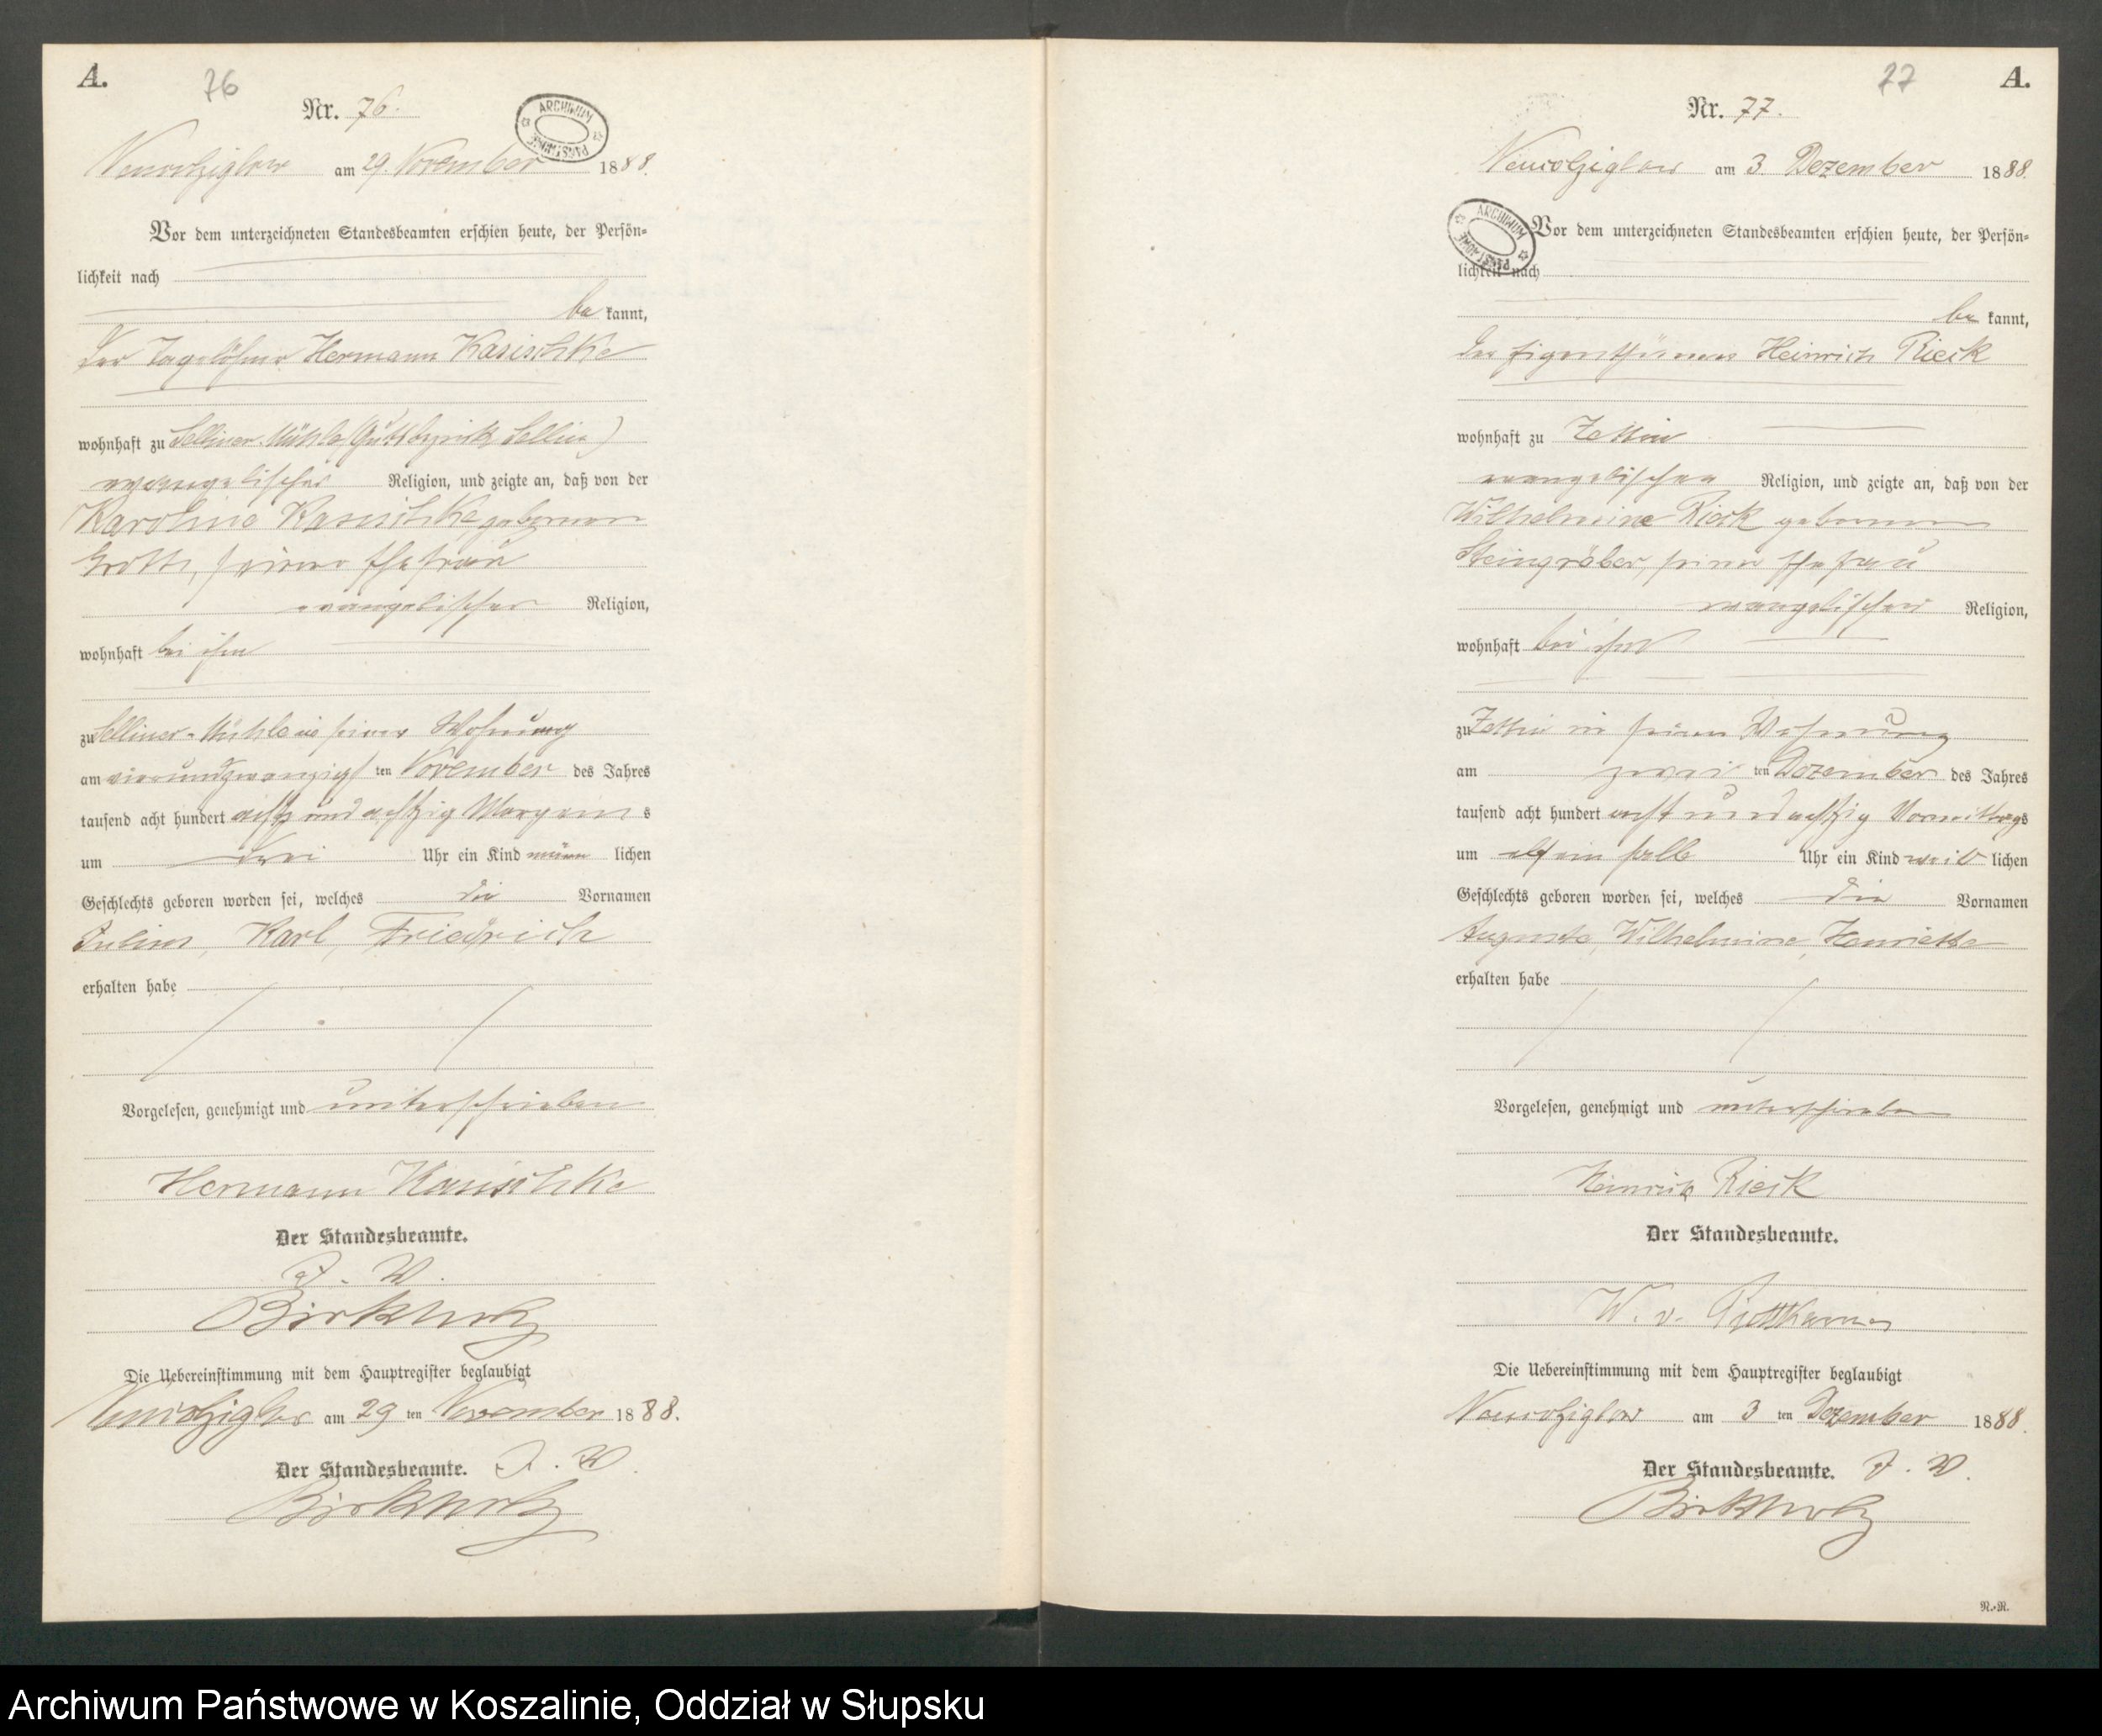 A.
76
Nr. 76.
ARCHIWUM PAŃSTWOWE
am 29. November 1888.
Vor dem unterzeichneten Standesbeamten erschien heute, der Persön=
lichkeit nach
be kannt,
der Tagelöhner Hermann Kasischke
wohnhaft zu Selliner-Mühle (Gutsbezirk Sellin)
evangelischer Religion, und zeigte an, daß von der
Karoline Kasischke geborenen
seiner Ehefrau
evangelischer Religion,
wohnhaft bei ihm
zu Selliner-Mühle in seiner Wohnung
am vierundzwanzigs ten November des Jahres
tausend acht hundert acht und achtzig Morgens
um drei Uhr ein Kind männ lichen
Geschlechts geboren worden sei, welches die Vornamen
Julius, Karl, Friedrich
erhalten habe
Vorgelesen, genehmigt und unterschrieben
Hermann Kasischke
Der Standesbeamte.
J. V.
Birkholz
Die Uebereinstimmung mit dem Hauptregister beglaubigt
am 29 ten November 1888.
Der Standesbeamte. J. V.
Birkholz
77
A.
Nr. 77.
am 3. Dezember 1888.
ARCHIWUM PAŃSTWOWE
Vor dem unterzeichneten Standesbeamten erschien heute, der Persön=
lichkeit nach
be kannt,
der Eigenthümer Heinrich Rieck
wohnhaft zu Zettin
evangelischer Religion, und zeigte an, daß von der
Wilhelmine Rieck geborenen
Steingräber, seiner Ehefrau
evangelischer Religion,
wohnhaft bei ihm
zu Zettin in seiner Wohnung
am zwei ten Dezember des Jahres
tausend acht hundert acht und achtzig Vormittags
um elf ein halb Uhr ein Kind weib lichen
Geschlechts geboren worden sei, welches die Vornamen
Auguste, Wilhelmine, Henriette
erhalten habe
Vorgelesen, genehmigt und unterschrieben
Heinrich Rieck
Der Standesbeamte.
W. v. Puttkamer
Die Uebereinstimmung mit dem Hauptregister beglaubigt
am 3 ten Dezember 1888.
Der Standesbeamte. J. V.
Birkholz
N.=N.
Archiwum Państwowe w Koszalinie, Oddział w Słupsku